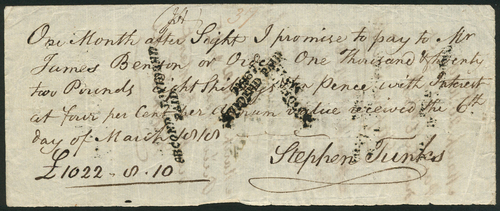 One Month after Sight I promise to pay to Mr
James Benson or Order One Thousand & Twenty
two Pounds Eight Shillings Ten Pence with Interest
at four per Cent per Annum value received the 6th
day of March 1818
£1022-8-10
Stephen Tunks